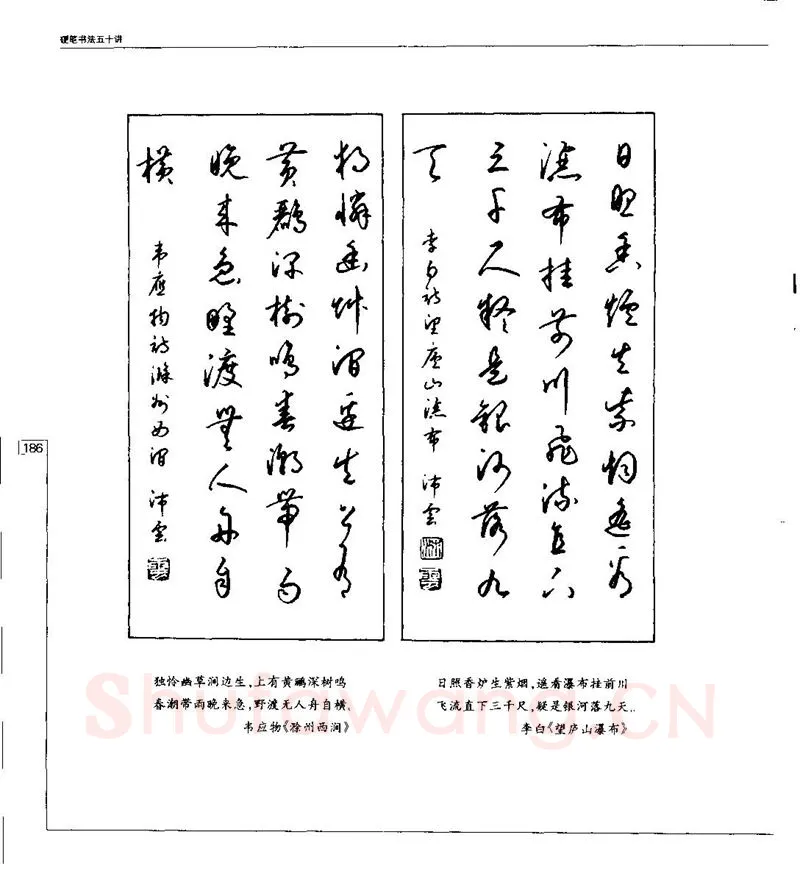 硬笔书法五十讲
日照香炉生紫烟遥看
瀑布挂前川飞流直下
三千尺疑是银河落九
天
李白诗望庐山瀑布 沛雲
独怜幽草涧边生上有
黄鹂深树鸣春潮带雨
晚来急野渡無人舟自
横
韦应物诗滁州西涧 沛雲
186
独怜幽草涧边生,上有黄鹂深树鸣
春潮带雨晚来急,野渡无人舟自横.
韦应物《滁州西涧》
日照香炉生紫烟,遥看瀑布挂前川
飞流直下三千尺,疑是银河落九天..
李白《望庐山瀑布》
Shufawang.CN